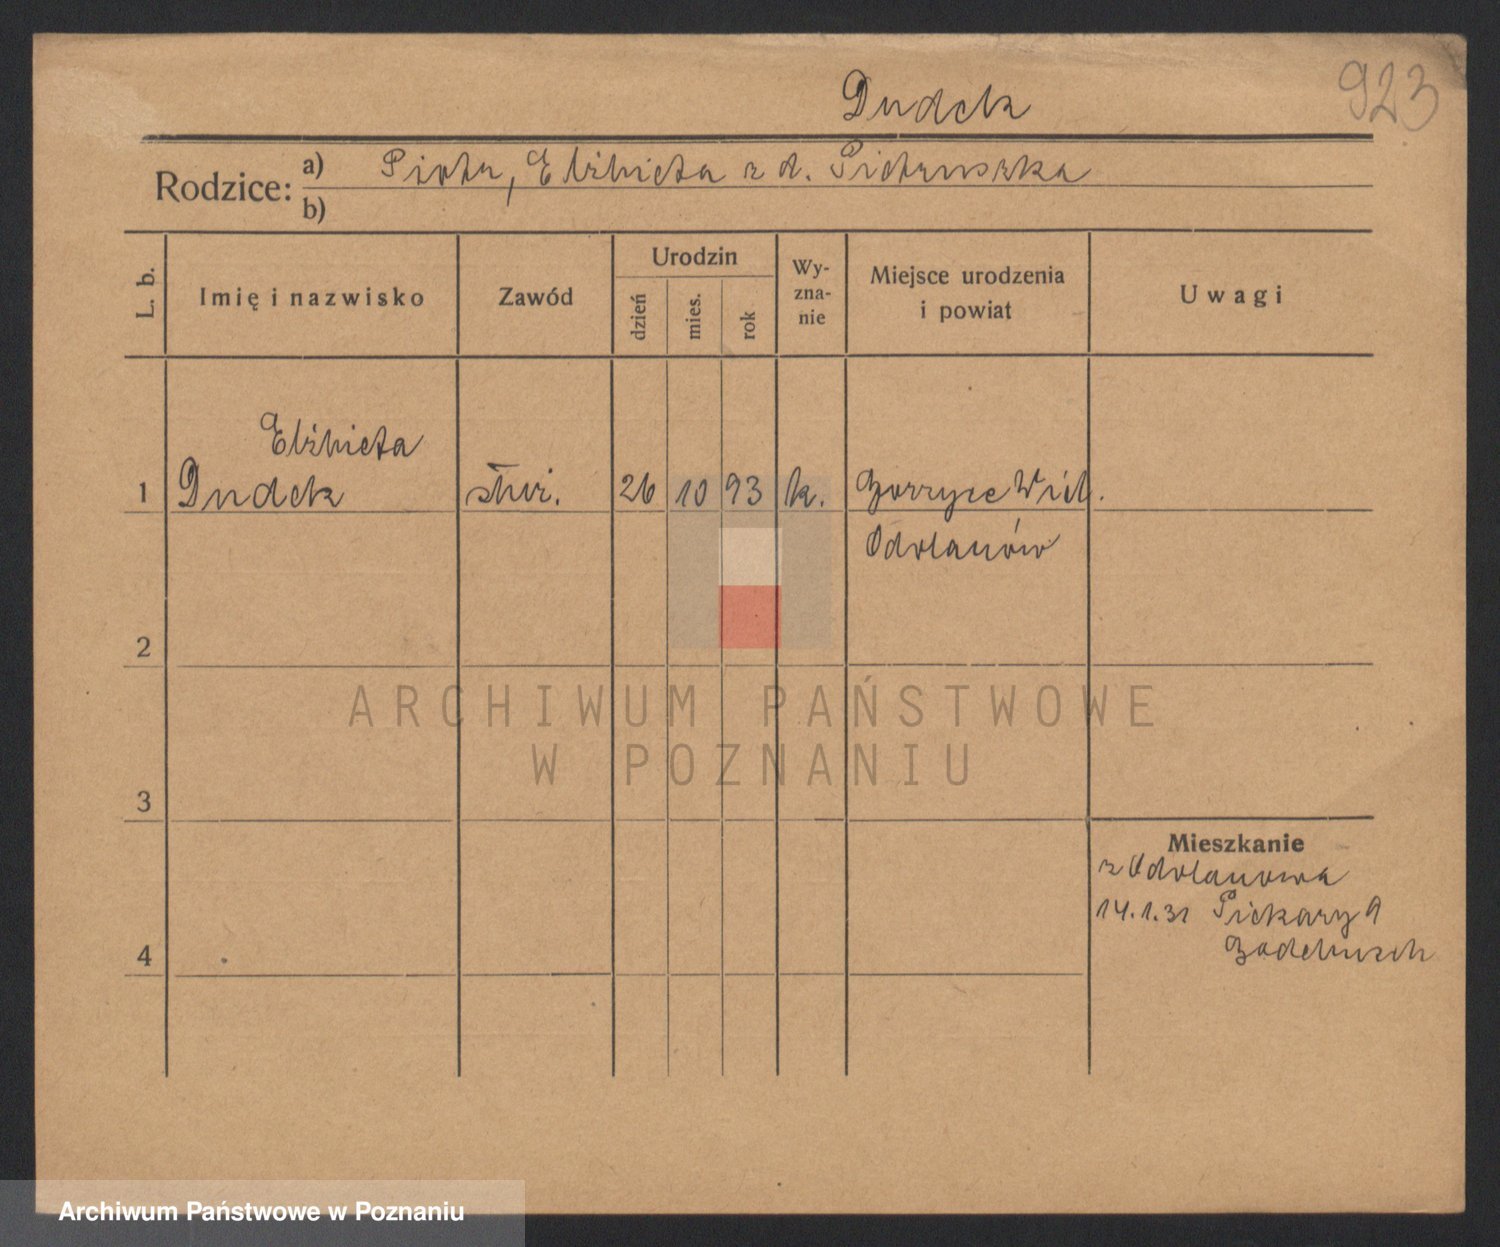 Dudek
923
Rodzice: a) Piotr, Elżbieta z d. Pietruszka
b)
L. b.
Imię i nazwisko
Zawód
Urodzin
dzień
mies.
rok
Wy-
zna-
nie
Miejsce urodzenia
i powiat
Uwagi
Elżbieta
1 Dudek służ. 26 10 93 k. Gorzyce Wiel.
Odolanów
2
3
4
Mieszkanie
z Odolanowa
14.1.31 Piekary 9
ARCHIWUM PAŃSTWOWE
W POZNANIU
Archiwum Państwowe w Poznaniu